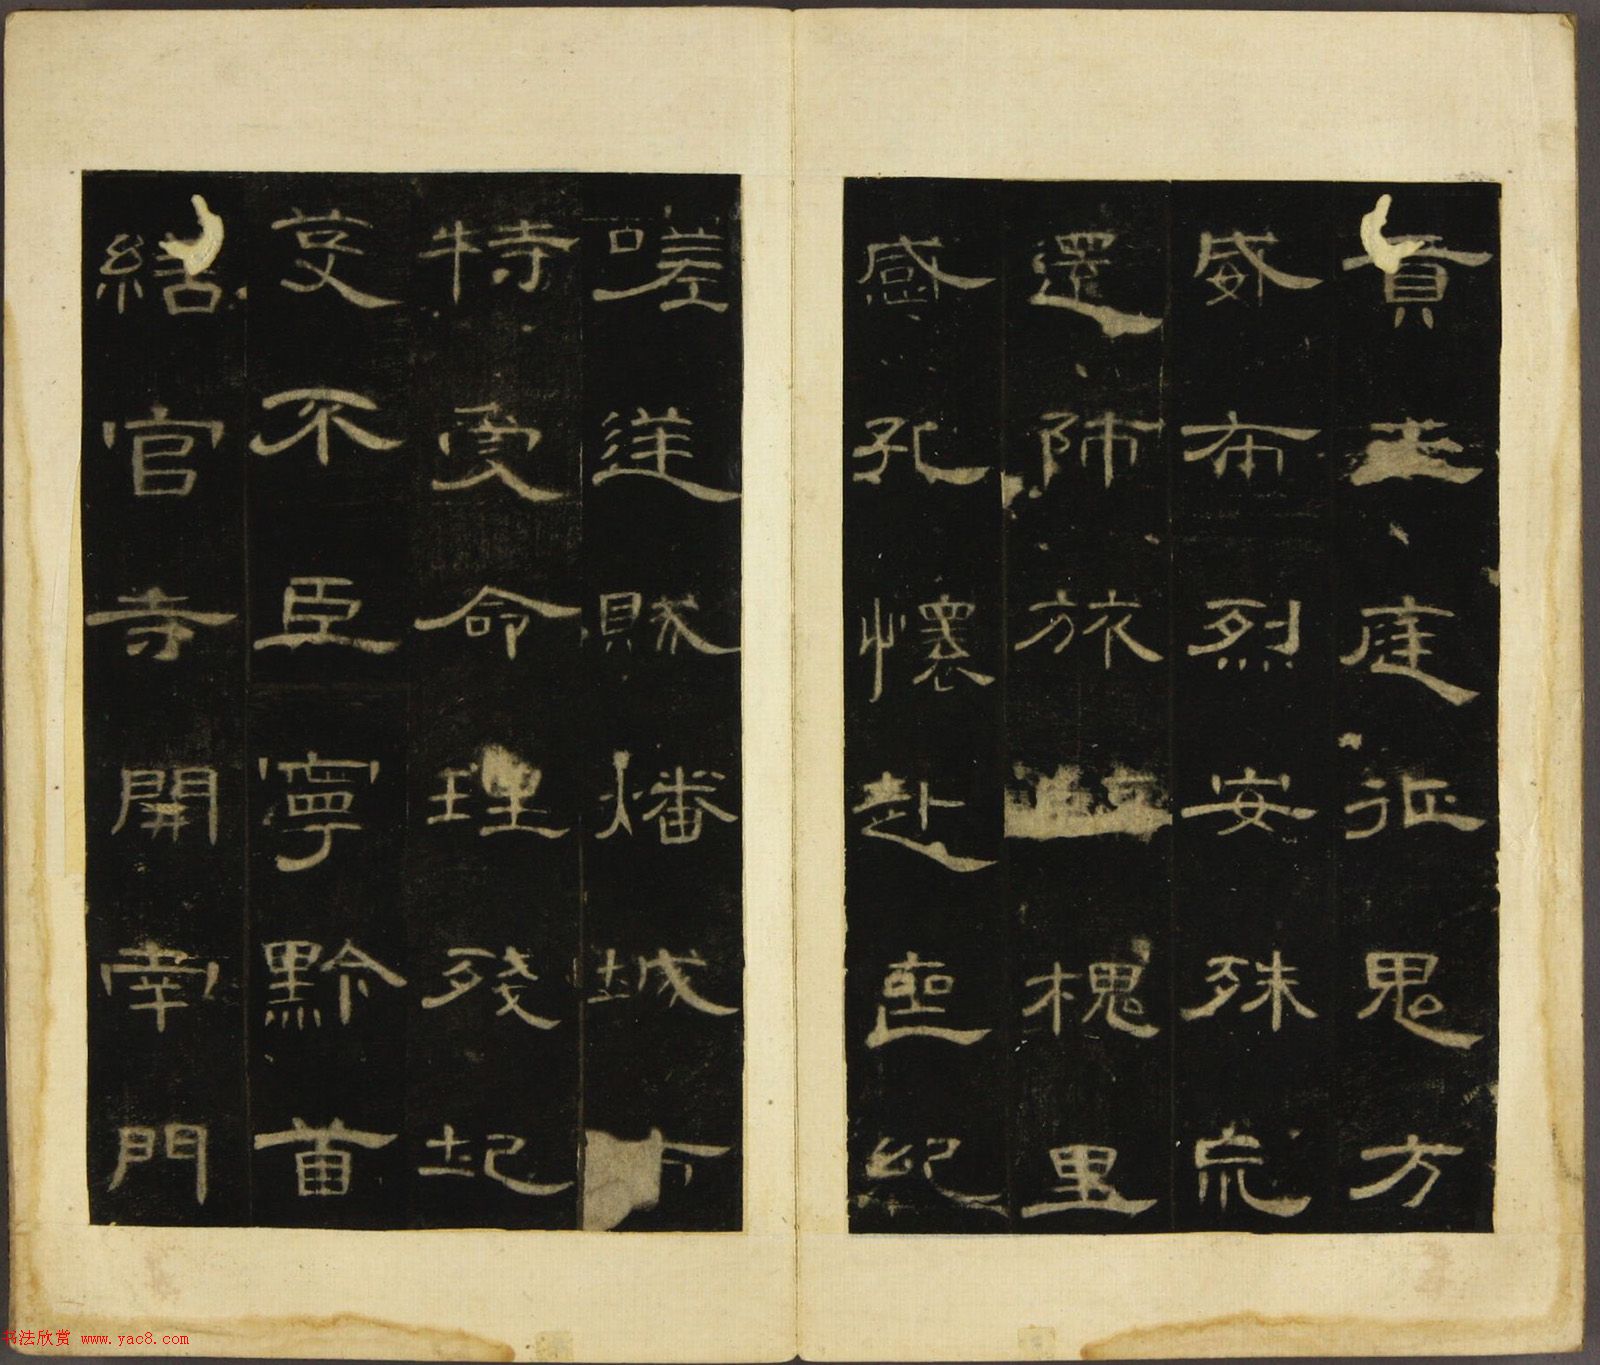 貢王庭征鬼方
威布烈安殊荒
還師旅槐里
感孔懷赴喪紀
嗟逆賊燔城市
特受命理殘圮
芟不臣寧黔首
繕官寺開南門
书法欣赏 www.yac8.com